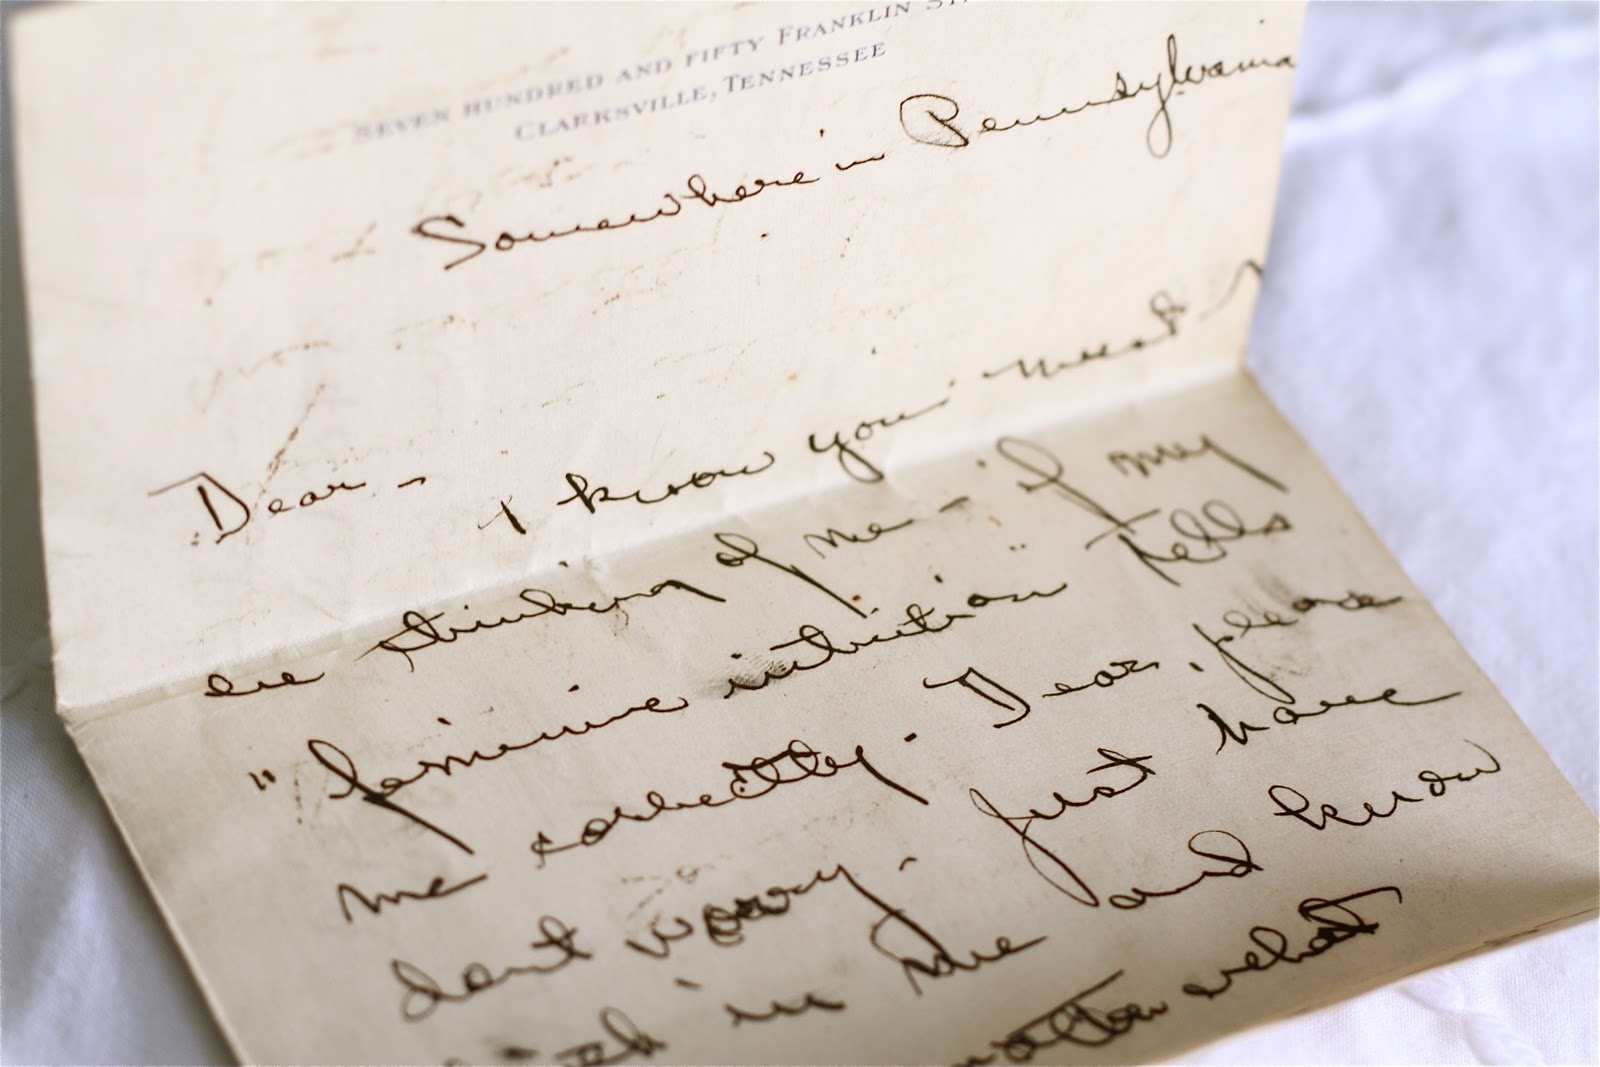 SEVEN HUNDRED AND FIFTY FRANKLIN ST
CLARKSVILLE, TENNESSEE
Somewhere in Pennsylvania
Dear - I know you must
be thinking of me - if my
"feminine intuition" tells
me correctly. Dear, please
don't worry - just have
faith in me and know
matter what